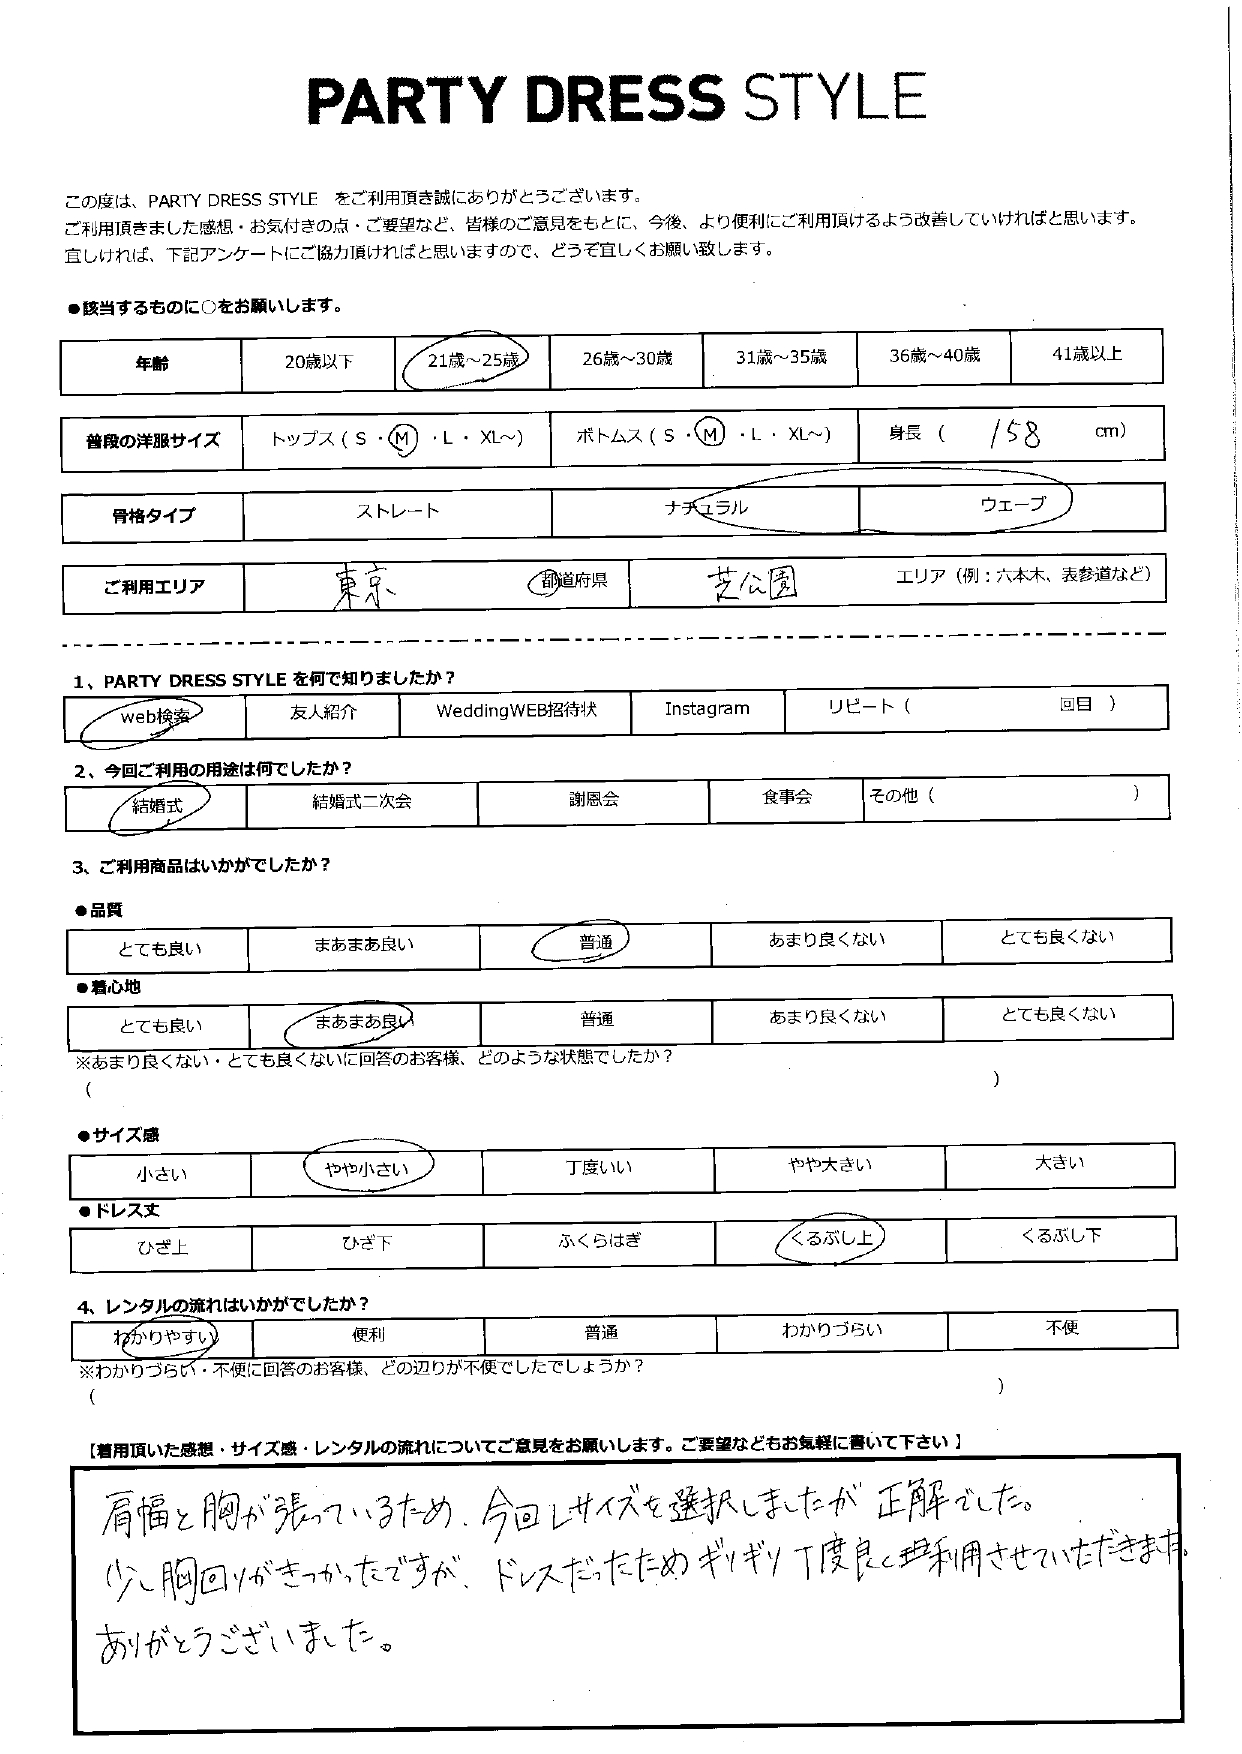 PARTY DRESS STYLE
この度は、PARTY DRESS STYLE をご利用頂き誠にありがとうございます。
ご利用頂きました感想・お気付きの点・ご要望など、皆様のご意見をもとに、今後、より便利にご利用頂けるよう改善していければと思います。
宜しければ、下記アンケートにご協力頂ければと思いますので、どうぞ宜しくお願い致します。
●該当するものに○をお願いします。
年齢 20歳以下 21歳～25歳 26歳～30歳 31歳～35歳 36歳～40歳 41歳以上
普段の洋服サイズ トップス ( S ・ M ・ L ・ XL～) ボトムス ( S ・ M ・ L ・ XL～) 身長 ( 158 cm)
骨格タイプ ストレート ナチュラル ウェーブ
ご利用エリア 東京 都道府県 芝公園 エリア（例：六本木、表参道など）
1、PARTY DRESS STYLE を何で知りましたか？
web検索 友人紹介 WeddingWEB招待状 Instagram リピート ( 回目 )
2、今回ご利用の用途は何でしたか？
結婚式 結婚式二次会 謝恩会 食事会 その他 ( )
3、ご利用商品はいかがでしたか？
●品質
とても良い まあまあ良い 普通 あまり良くない とても良くない
●着心地
とても良い まあまあ良い 普通 あまり良くない とても良くない
※あまり良くない・とても良くないに回答のお客様、どのような状態でしたか？
( )
●サイズ感
小さい やや小さい 丁度いい やや大きい 大きい
●ドレス丈
ひざ上 ひざ下 ふくらはぎ くるぶし上 くるぶし下
4、レンタルの流れはいかがでしたか？
わかりやすい 便利 普通 わかりづらい 不便
※わかりづらい・不便に回答のお客様、どの辺りが不便でしたでしょうか？
( )
【着用頂いた感想・サイズ感・レンタルの流れについてご意見をお願いします。ご要望などもお気軽に書いて下さい】
肩幅と胸が張っているため、今回Lサイズを選択しましたが正解でした。
少し胸回りがきつかったですが、ドレスだったためギリギリ丁度良く利用させていただきます。
ありがとうございました。